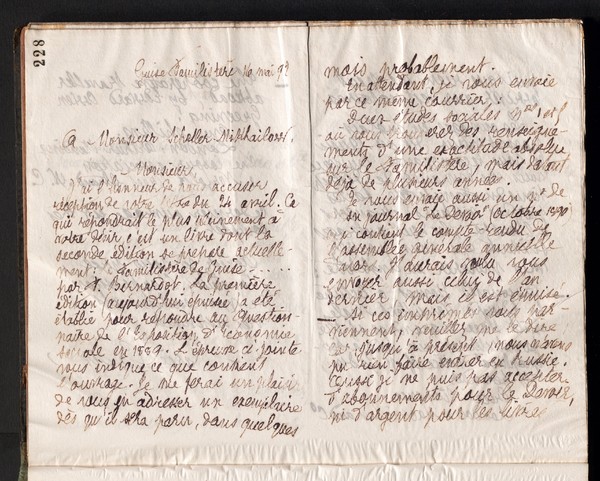 228
Guise Familistère 16 mai 92
A Monsieur Scheller-Mikhailoff.
Monsieur,
J'ai l'honneur de vous accuser
réception de votre lettre du 24 avril. Ce
qui répondrait le plus pleinement à
votre désir, c'est un livre dont la
seconde édition se prépare actuelle
ment: Familistère de Guise
par F. Bernardot. La première
édition aujourd'hui épuisée a été
établie pour répondre au Question-
naire de l'Exposition d'Economie
sociale en 1889. L'épreuve ci-jointe
vous indique ce que contient
l'ouvrage. Je me ferai un plaisir
de vous en adresser un exemplaire
dès qu'il sera paru, dans quelques
mois probablement.
En attendant, je vous envoie
par ce même courrier:
Deux études sociales Nos 1 et
où vous trouverez des renseigne-
ments d'une exactitude absolue
sur le Familistère, mais datant
déjà de plusieurs années.
Je vous envoie aussi un no de
journal "Le Devoir" (octobre
qui contient le compte-rendu de
l'assemblée générale annuelle
J'aurais voulu vous
envoyer aussi celui de l'an
dernier mais il est épuisé.
Si ces imprimés vous par-
viennent, veuillez me le dire
car jusqu'à présent nous n'avons
pu rien faire entrer en Russie.
Aussi je ne puis pas accepter
d'abonnements pour le Devoir,
ni d'argent pour les livres